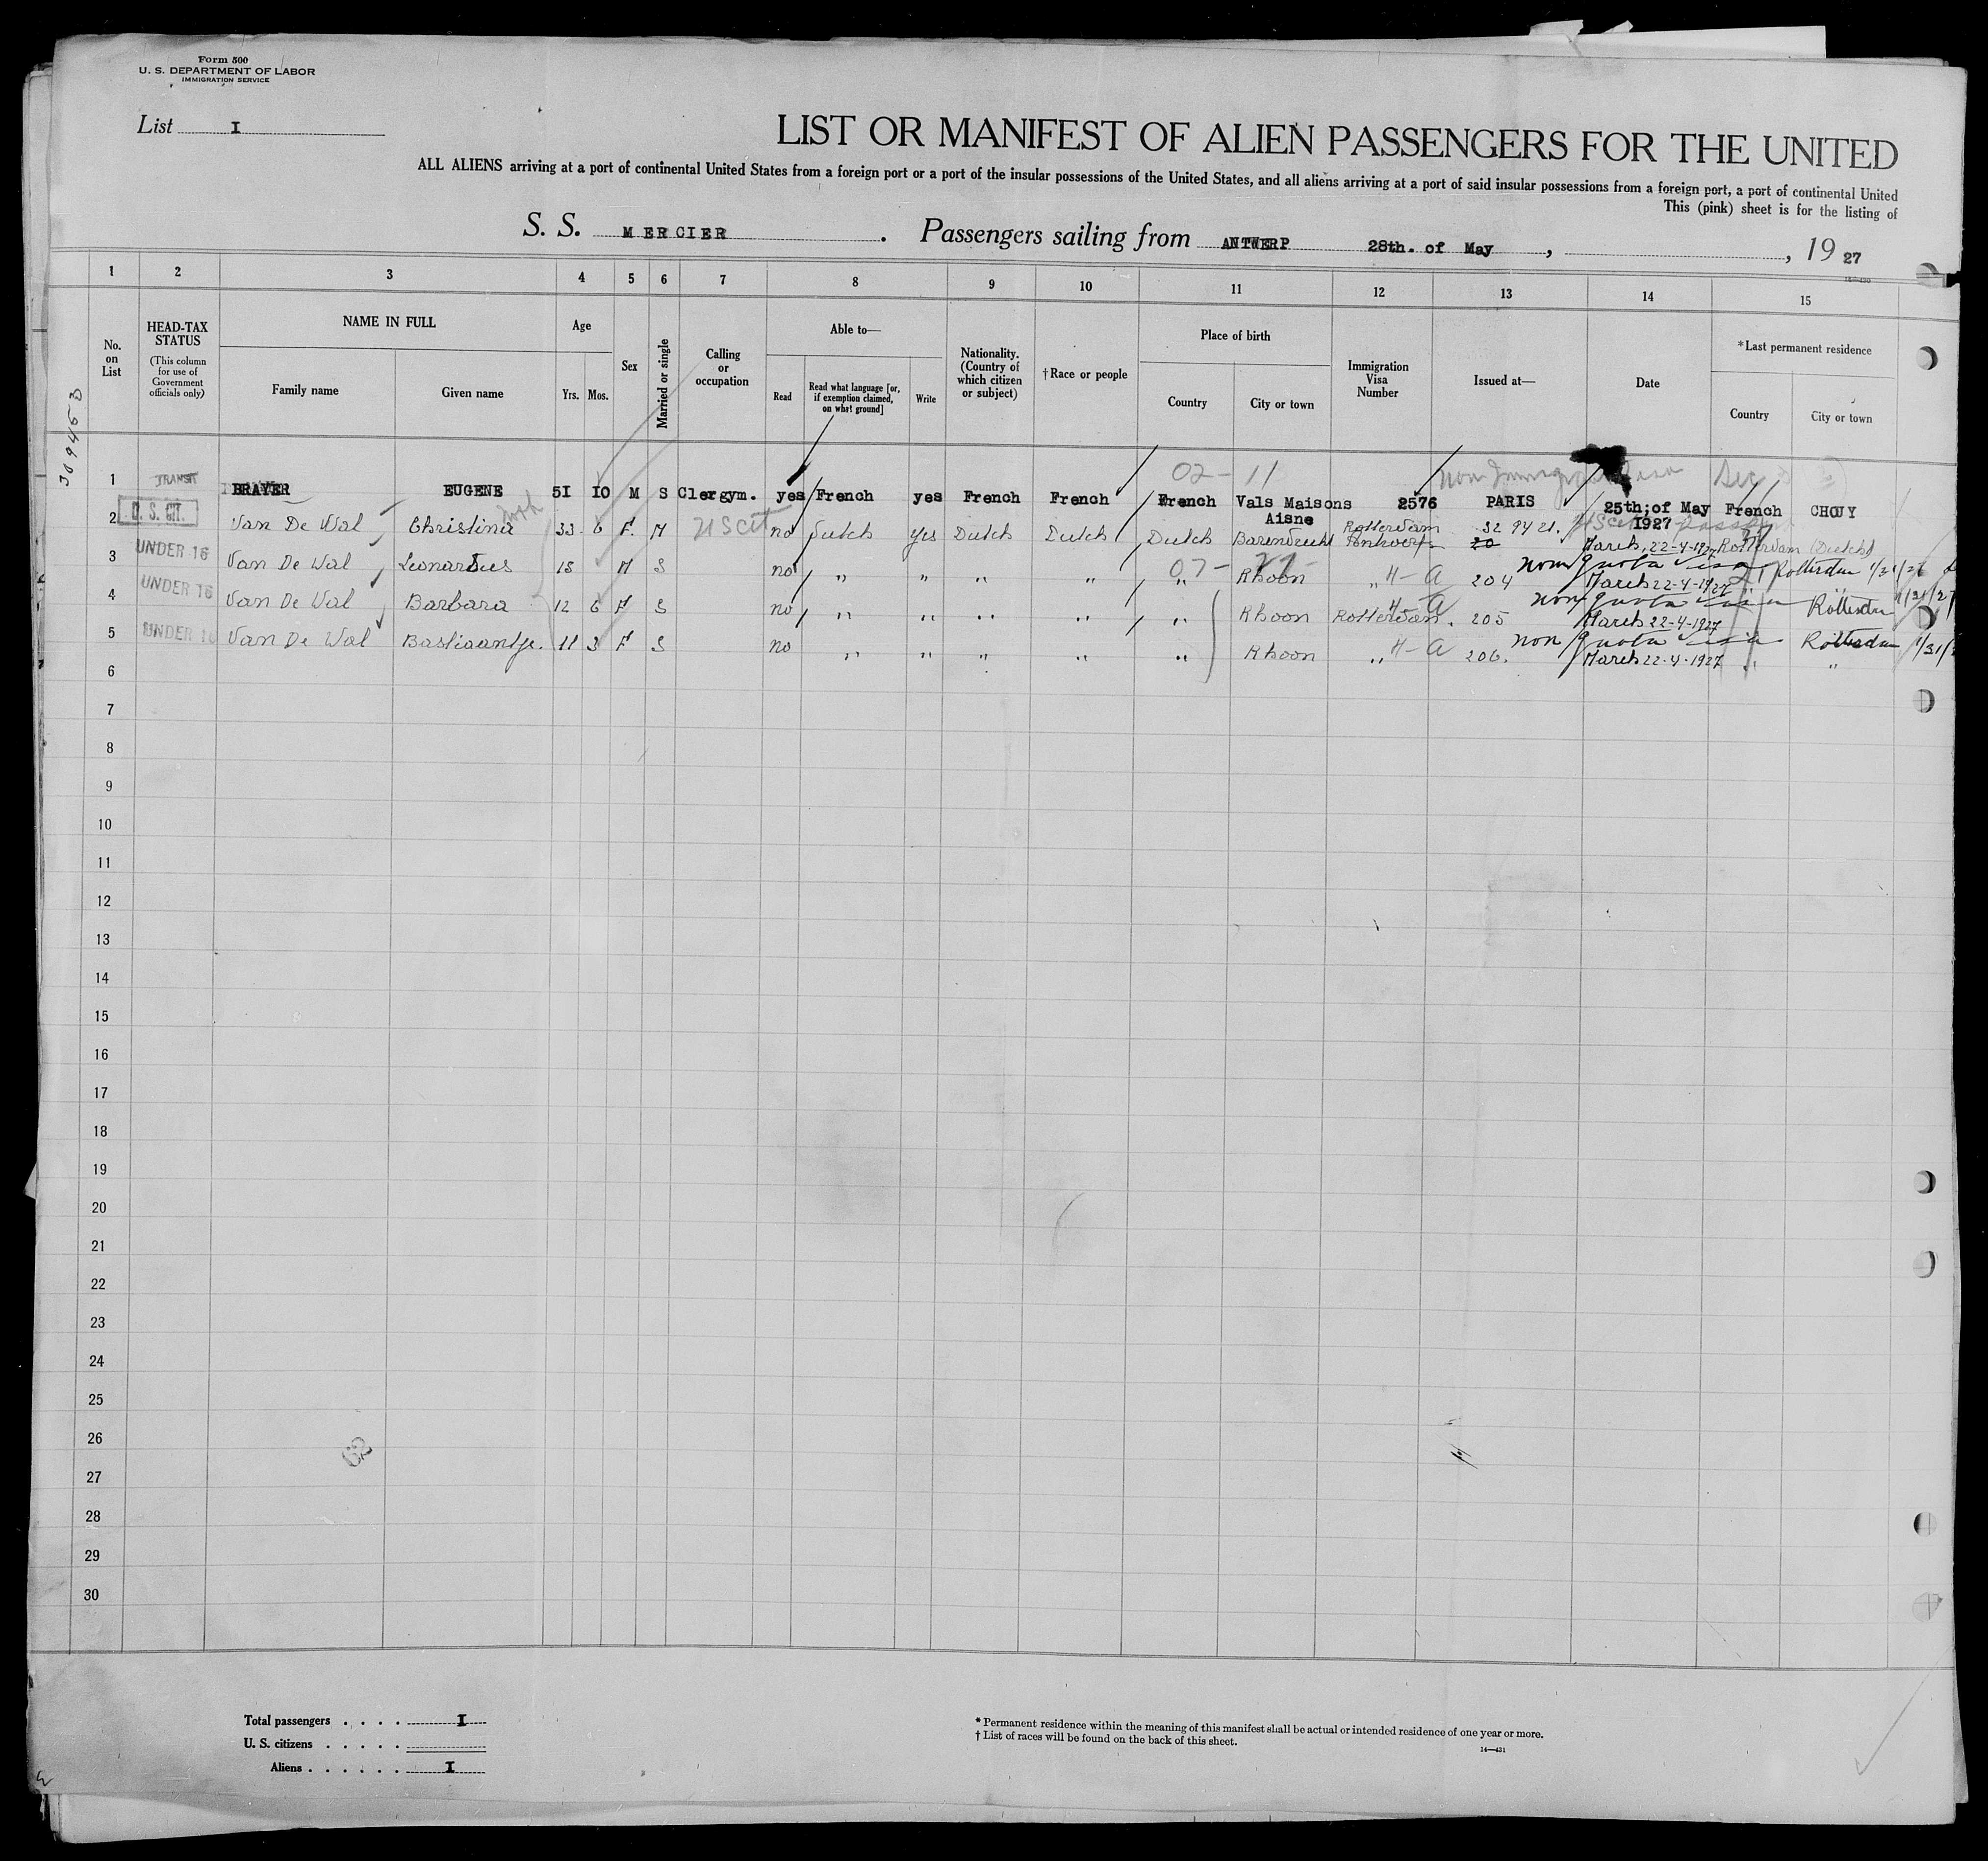 Form 500
U. S. DEPARTMENT OF LABOR
IMMIGRATION SERVICE
List I
LIST OR MANIFEST OF ALIEN PASSENGERS FOR THE UNITED
ALL ALIENS arriving at a port of continental United States from a foreign port or a port of the insular possessions of the United States, and all aliens arriving at a port of said insular possessions from a foreign port, a port of continental United
This (pink) sheet is for the listing of
S. S. MERCIER . Passengers sailing from ANTWERP 28th. of May , , 19 27
1 2 3 4 5 6 7 8 9 10 11 12 13 14 15
No. on List
HEAD-TAX STATUS
(This column for use of Government officials only)
NAME IN FULL
Family name
Given name
Age
Yrs. Mos.
Sex
Married or single
Calling or occupation
Able to—
Read
Read what language [or, if exemption claimed, on what ground]
Write
Nationality. (Country of which citizen or subject)
†Race or people
Place of birth
Country
City or town
Immigration Visa Number
Issued at—
Date
*Last permanent residence
Country
City or town
02- 11
1 TRANSIT BRAYER EUGENE 51 10 M S Clergym. yes French yes French French French Vals Maisons Aisne 2576 PARIS 25th;of May 1927 French CHOUY
2 U. S. CIT. Van De Wal Christina 33 6 F. M US Cit no Dutch yes Dutch Dutch Dutch Barendrecht Rotterdam 32 94 21. March, 22-4-1927 Rotterdam (Dutch)
07-
3 UNDER 16 Van De Wal Leonardus 15 M S no " " " " " Rhoon " 4-a 204 non quota visa March 22-4-1927 Rotterdam
4 UNDER 16 Van De Wal Barbara 12 6 F S no " " " " " Rhoon Rotterdam. 4-a 205 non quota visa March 22-4-1927 " Rotterdam
5 UNDER 16 Van De Wal Bastiaantje. 11 3 F S no " " " " " Rhoon " 4-a 206. non quota visa March 22-4-1927 " Rotterdam 1/31/
6
7
8
9
10
11
12
13
14
15
16
17
18
19
20
21
22
23
24
25
26
27
28
29
30
62
Total passengers . . . . I
U. S. citizens . . . . .
Aliens . . . . . . I
* Permanent residence within the meaning of this manifest shall be actual or intended residence of one year or more.
† List of races will be found on the back of this sheet.
14—431